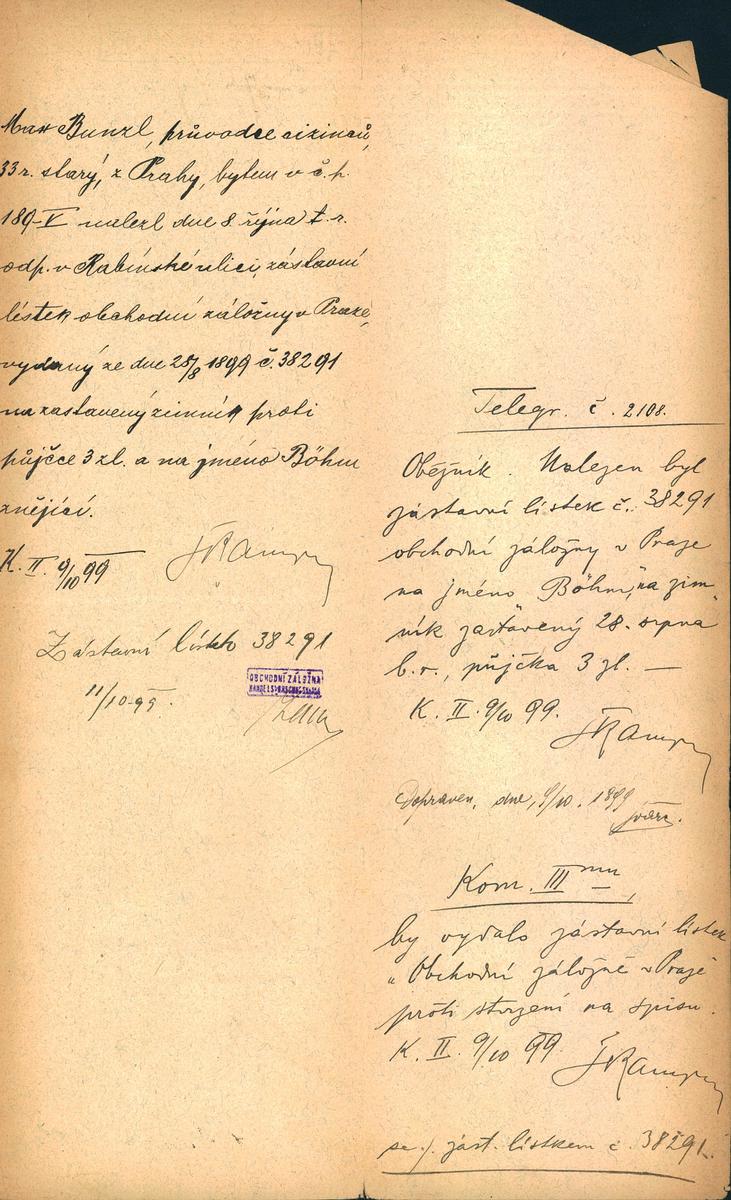 Max Bunzl, průvodce cizinců,
33 r. starý, z Prahy, bytem v č. p.
189-V nalezl dne 8. října t. r.
odp. v Rabínské ulici, zástavní
lístek obchodní záložny v Praze,
vydaný ze dne 28/8 1899 č. 38291
na zastavený zimník proti
půjčce 3 zl. a na jméno Böhm
znějící.
K. II. 9/10 99
Zástavní lístek 38291
11/10-99.
OBCHODNÍ ZÁLOŽNA
Telegr. č. 2108.
Oběžník. Nalezen byl
zástavní lístek č. 38291
obchodní záložny v Praze
na jméno Böhm, na zim-
ník zastavený 28. srpna
b. r., půjčka 3 zl. —
K. II. 9/10 99.
Dopraven, dne, 9/10. 1899
Kom. III mu
by vydalo zástavní lístek
„Obchodní záložně v Praze
proti stvrzení na spisu.
K. II. 9/10 99.
se /. zást. lístkem č. 38291.